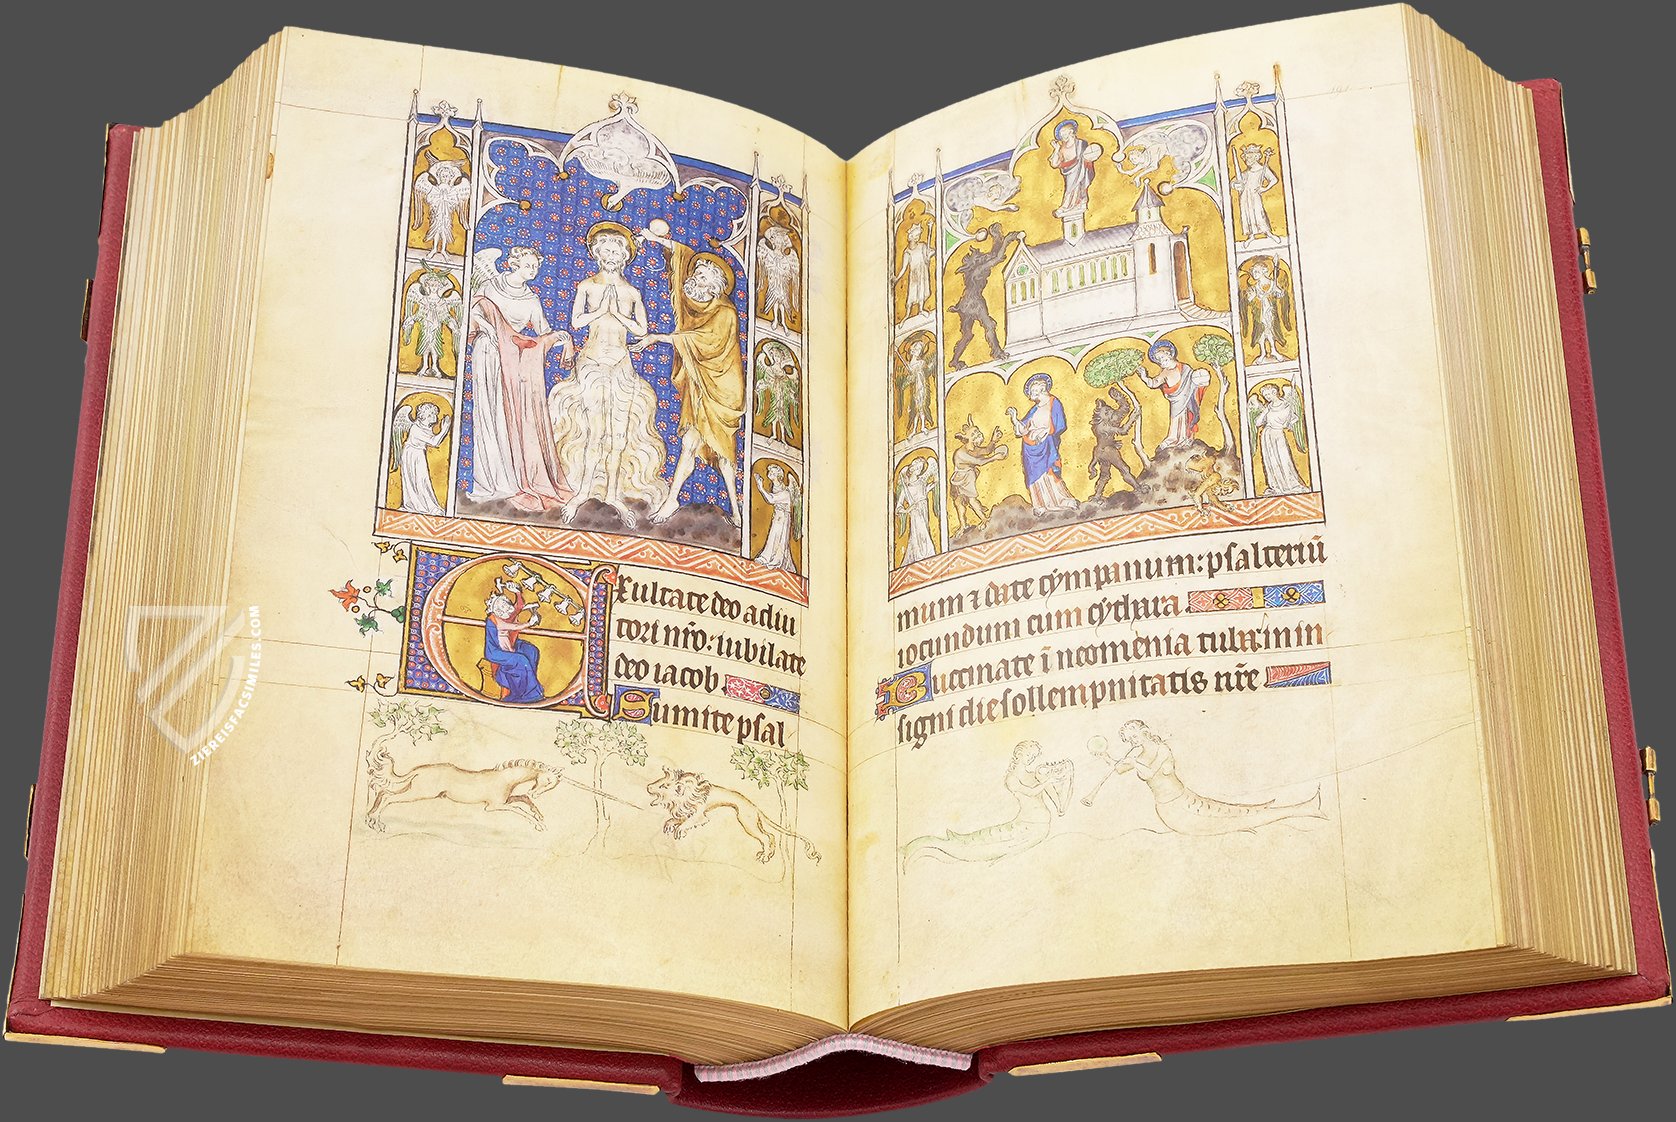 Exultate deo adiu
tori nr̄o: iubilate
deo iacob
Sumite psal
mum ⁊ date tympanum: psalteriū
iocundum cum cythara
Buccinate ī neomenia tuba in in
signi die sollempnitatis vr̄e
ZIEREISFACSIMILES.COM